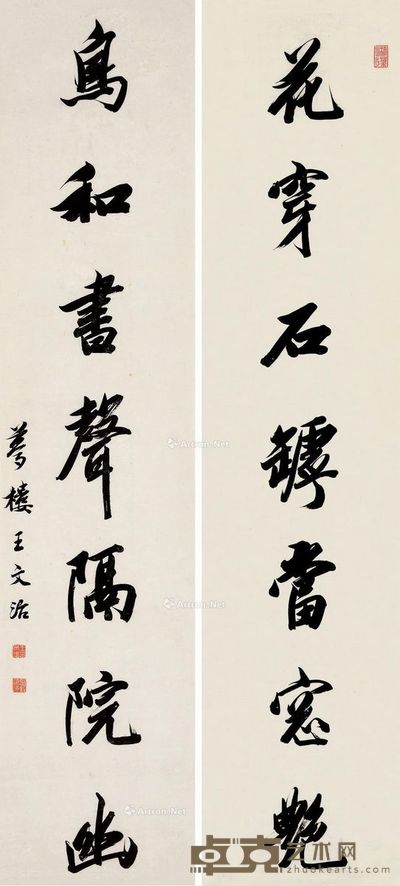 花穿石罅當窓艷
鳥和書聲隔院幽
夢樓王文治
Artron.Net
Artron.Net
Artron.Net
卓克艺术网
zhuokearts.com